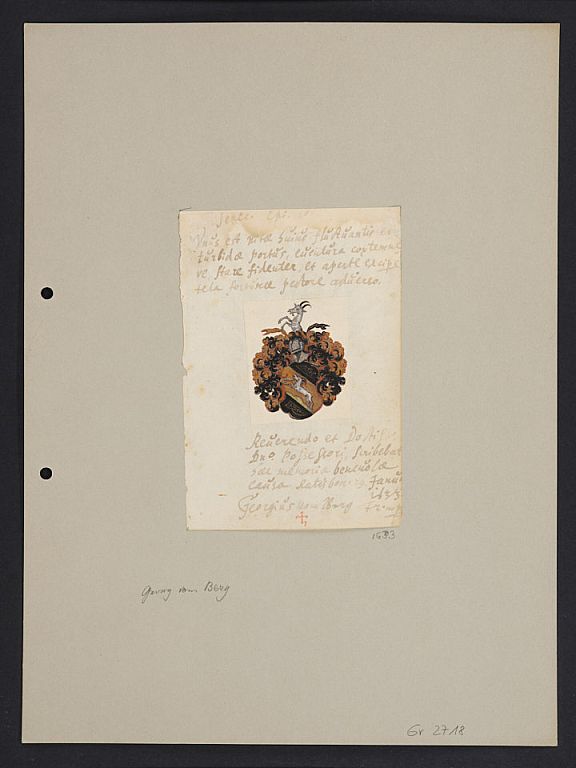 Senec. Epi.
Unus est vitæ huius fluctuantis
turbidæ portus, eventura contemne
re stare fidenter, et aperte excipe
tela fortunæ pectore adverso.
Reverendo et Doctiss
Dno Possessori, scribebat
hæc memoriæ benevolæ
causa Ratisbon. Janu
1633
Georgius vom Berg
1633
Georg vom Berg
Gr 2718